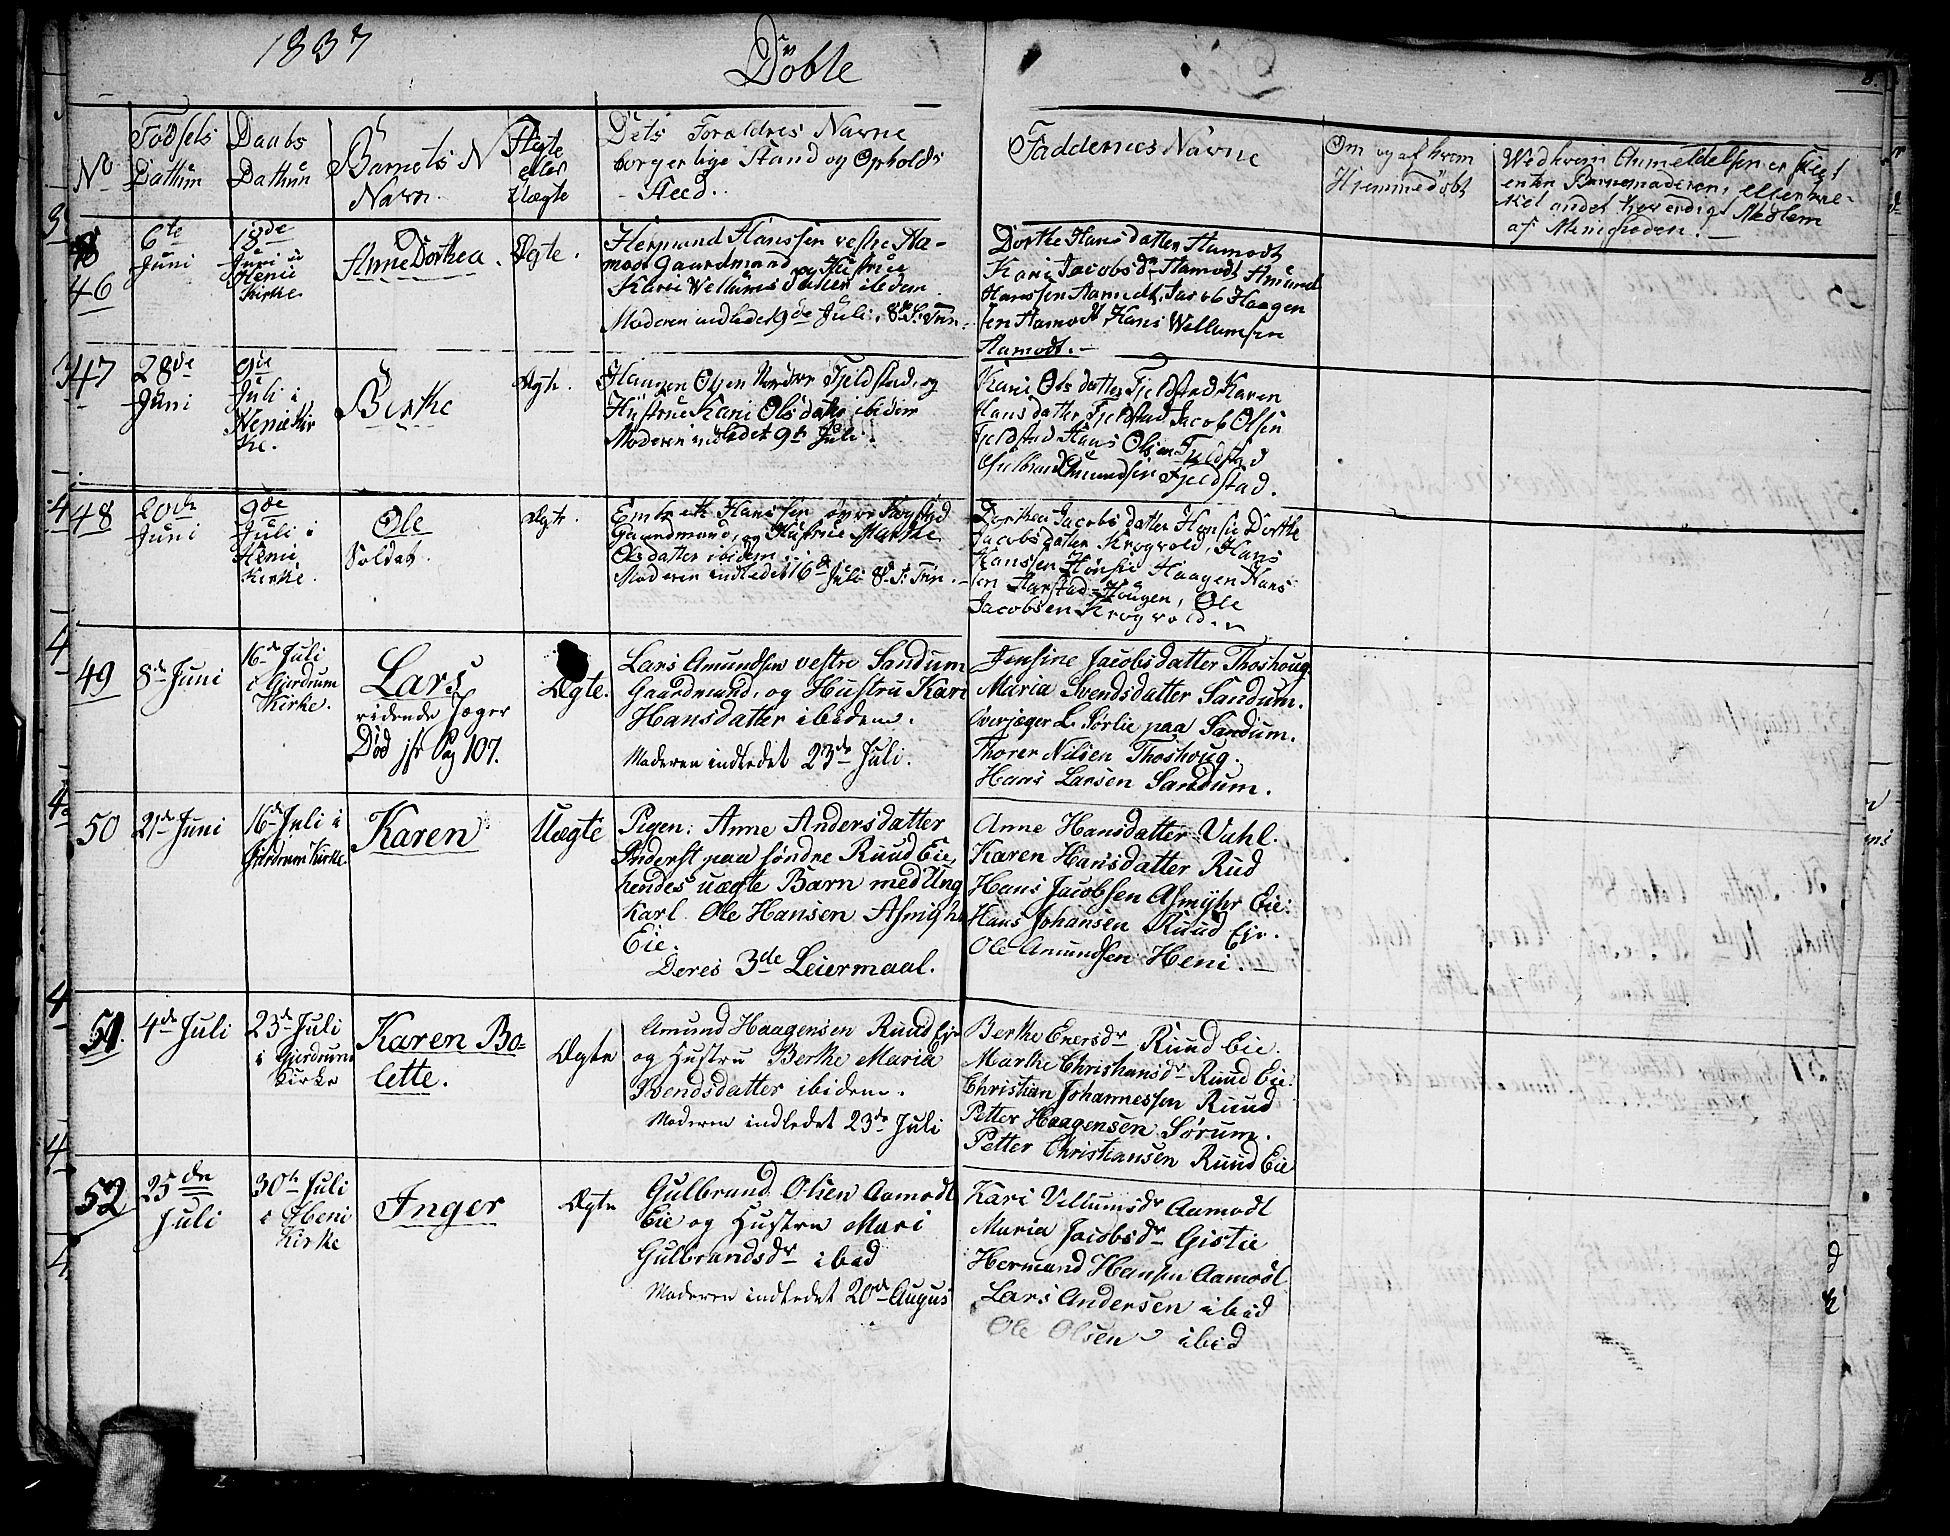 1837
Döbte
No
Födsels Dathum
Daabs Dathum
Barnets Navn
Ægte eller Uægte
Dets Forældres Navne
borgerlige Stand og Opholds
Sted.
Faddernes Navne
Om og af hvem
Hjemmedöbt
Wed hvem Anmeldelsen er skeet
enten Barnemoderen, eller
andet troværdigt Medlem
af Menigheden.
46
6te Juni
18de Juni i Henie Kirke
Anne Dorthea.
Ægte.
Hermand Hanssen vestre Aa-
modt Gaardmand og Hustrue
Karie Wellums Datter ibidem.
Moderen indledet 9de Juli. 8de S. Trin.
Dorthe Hansdatter Aamodt
Kari Jacobsdr Aamodt Amund
Hanssen Aamodt, Jacob Haagen
sen Aamodt, Hans Wellumsen
Aamodt.
47
28de Juni
9de Juli i Henie Kir
ke.
Berthe
Ægte.
Haagen Olsen Nordre Fjeldstad, og
Hustrue Kari Olsdatter ibidem
Moderen indledet 9de Juli.
Kari Olsdatter Fjeldstad Karen
Hansdatter Fjeldstad Jacob Olsen
Fjeldstad Hans Olsen Fjeldstad
Gulbrand Amundsen Fjeldstad.
48
20de Juni
9de Juli i Henie Kirke.
Ole
Soldat.
Ægte.
Embret Hanssen øvre
Gaardmand, og Hustrue Marthe
Olsdatter ibidem
Moderen indledet 16de Juli 8de S. Trin.
Dorthea Jacobsdatter Hønsie Dorthe
Jacobsdatter Krogvold, Hans
Hanssen Hønsie Haagen Hans
sen Harstad-Hougen, Ole
Jacobsen Krogvold.
49
8de Juni
16de Juli
i Gjerdrum
Kirke.
Lars
ridende Jæger
Död jfr Pag 107.
Ægte.
Lars Amundsen vestre Sandum
Gaardmand, og Hustru Kari
Hansdatter ibidem.
Moderen indledet 23de Juli.
Jensine Jacobsdatter Thoshoug
Maria Svendsdatter Sandum.
Overjæger L. Sørlie paa Sandum.
Thorer Nilsen Thoshoug.
Hans Larsen Sandum.
50
21de Juni
16de Juli i
Gjerdrum Kirke
Karen
Uægte
Pigen: Anne Andersdatter
Inderst paa söndre Ruud Eie,
hendes uægte Barn med Ung
Karl Ole Hansen Asmyhr
Eie.
Deres 3de Leiermaal.
Anne Hansdatter Vahl.
Karen Hansdatter Rud
Hans Jacobsen Asmyhr Eie:
Hans Johansen Ruud Eje.
Ole Amundsen Heni.
51.
4de Juli
23de Juli
i Gjerdrum
Kirke
Karen Bo-
lette.
Ægte
Amund Haagensen Ruud Eje
og Hustru Berthe Maria
Svendsdatter ibidem.
Moderen indledet 23de Juli
Berthe Enersdr Ruud Eie.
Marthe Christiansdr Ruud Eie:
Christian Johannessen Ruud
Petter Haagensen Sørum.
Petter Christiansen Ruud Eie
52
25de
Juli
30te Juli
i Heni
Kirke
Inger
Ægte
Gulbrand Olsen Aamodt
Eie og Hustru Mari
Gulbrandsdr ibid
Moderen indledet 20de Augus
Kari Vellumsdr Aamodt
Maria Jacobsdr Gistie
Hermand Hansen Aamodt
Lars Andersen ibid
Ole Olsen ibid